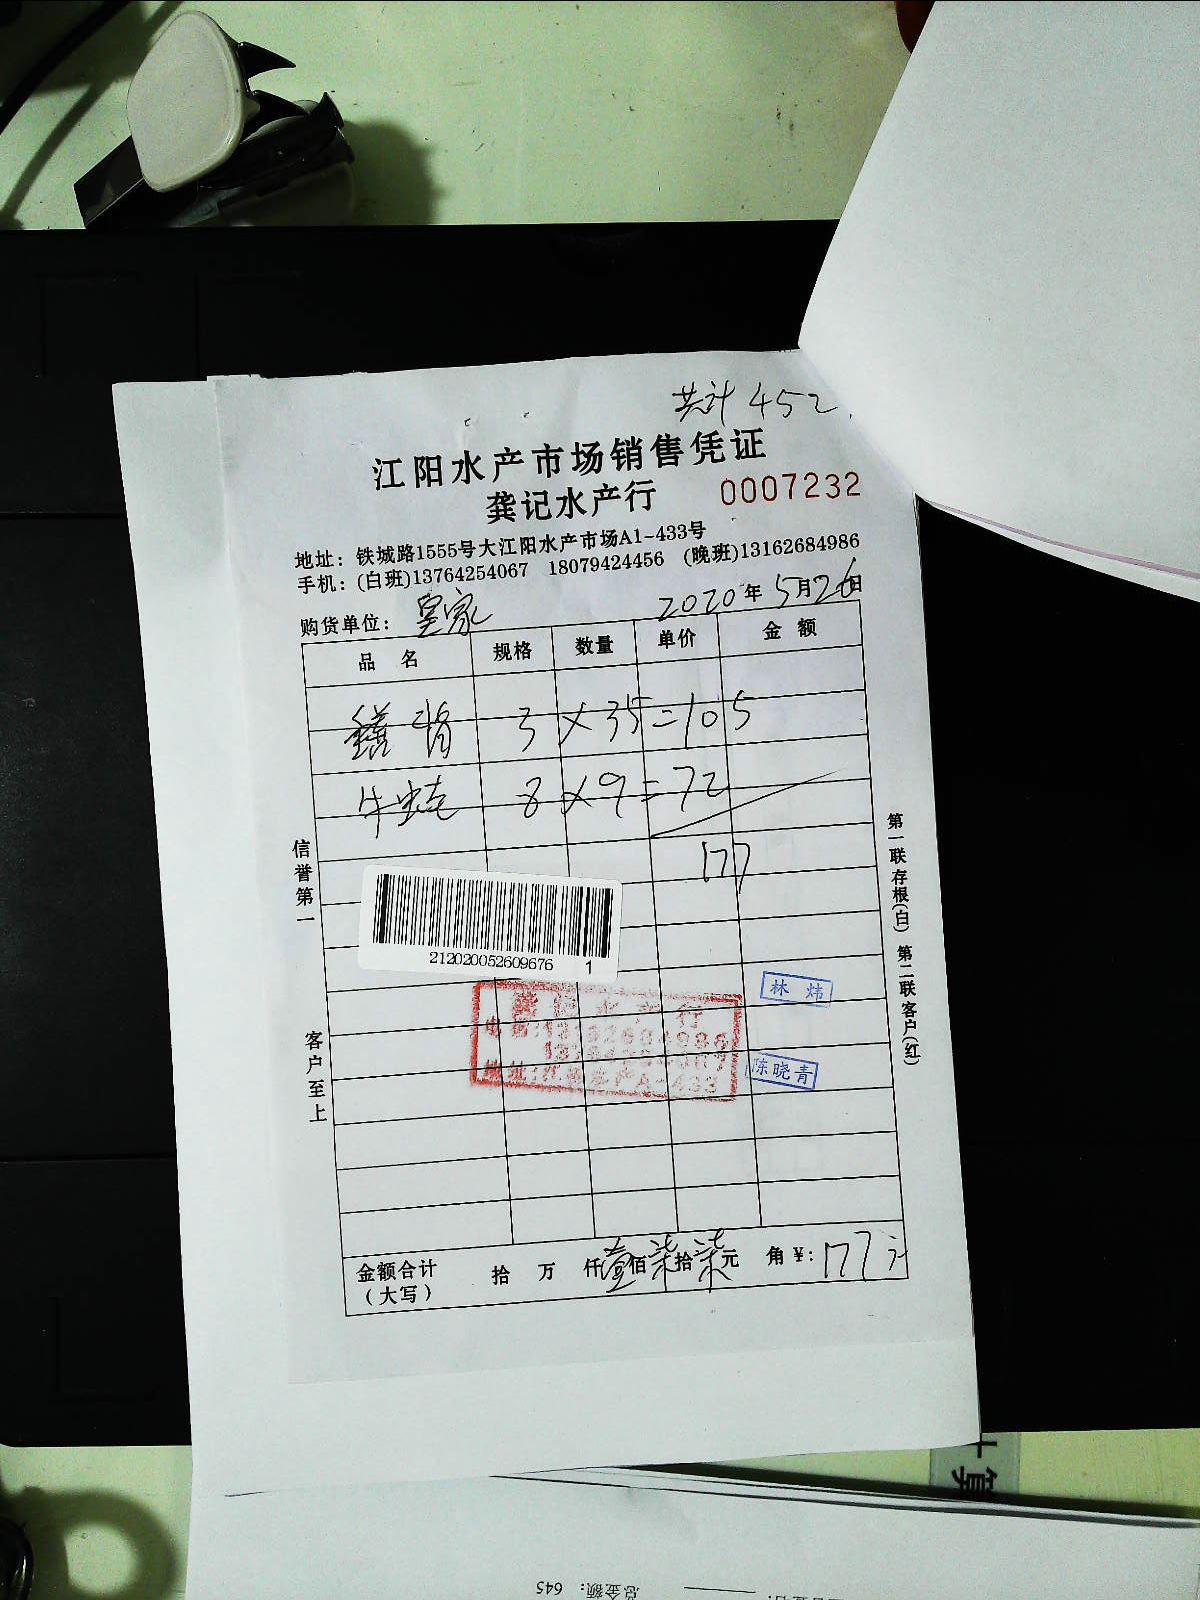 共计 452
江阳水产市场销售凭证
龚记水产行 0007232
地址：铁城路1555号大江阳水产市场A1-433号
手机：(白班)13764254067 18079424456 (晚班)13162684986
购货单位：皇家 2020年5月26日
品 名 规格 数量 单价 金 额
鳝背 3 × 35 = 105
牛蛙 8 × 9 = 72
177
信誉第一
客户至上
第一联存根(白) 第二联客户(红)
212020052609676 1
龚记水产行
电话:13162684986
13764254067
地址:江阳水产A-433
林炜
陈晓青
金额合计（大写） 拾 万 仟壹佰柒拾柒元 角 ¥: 177元
计算
总金额: 645